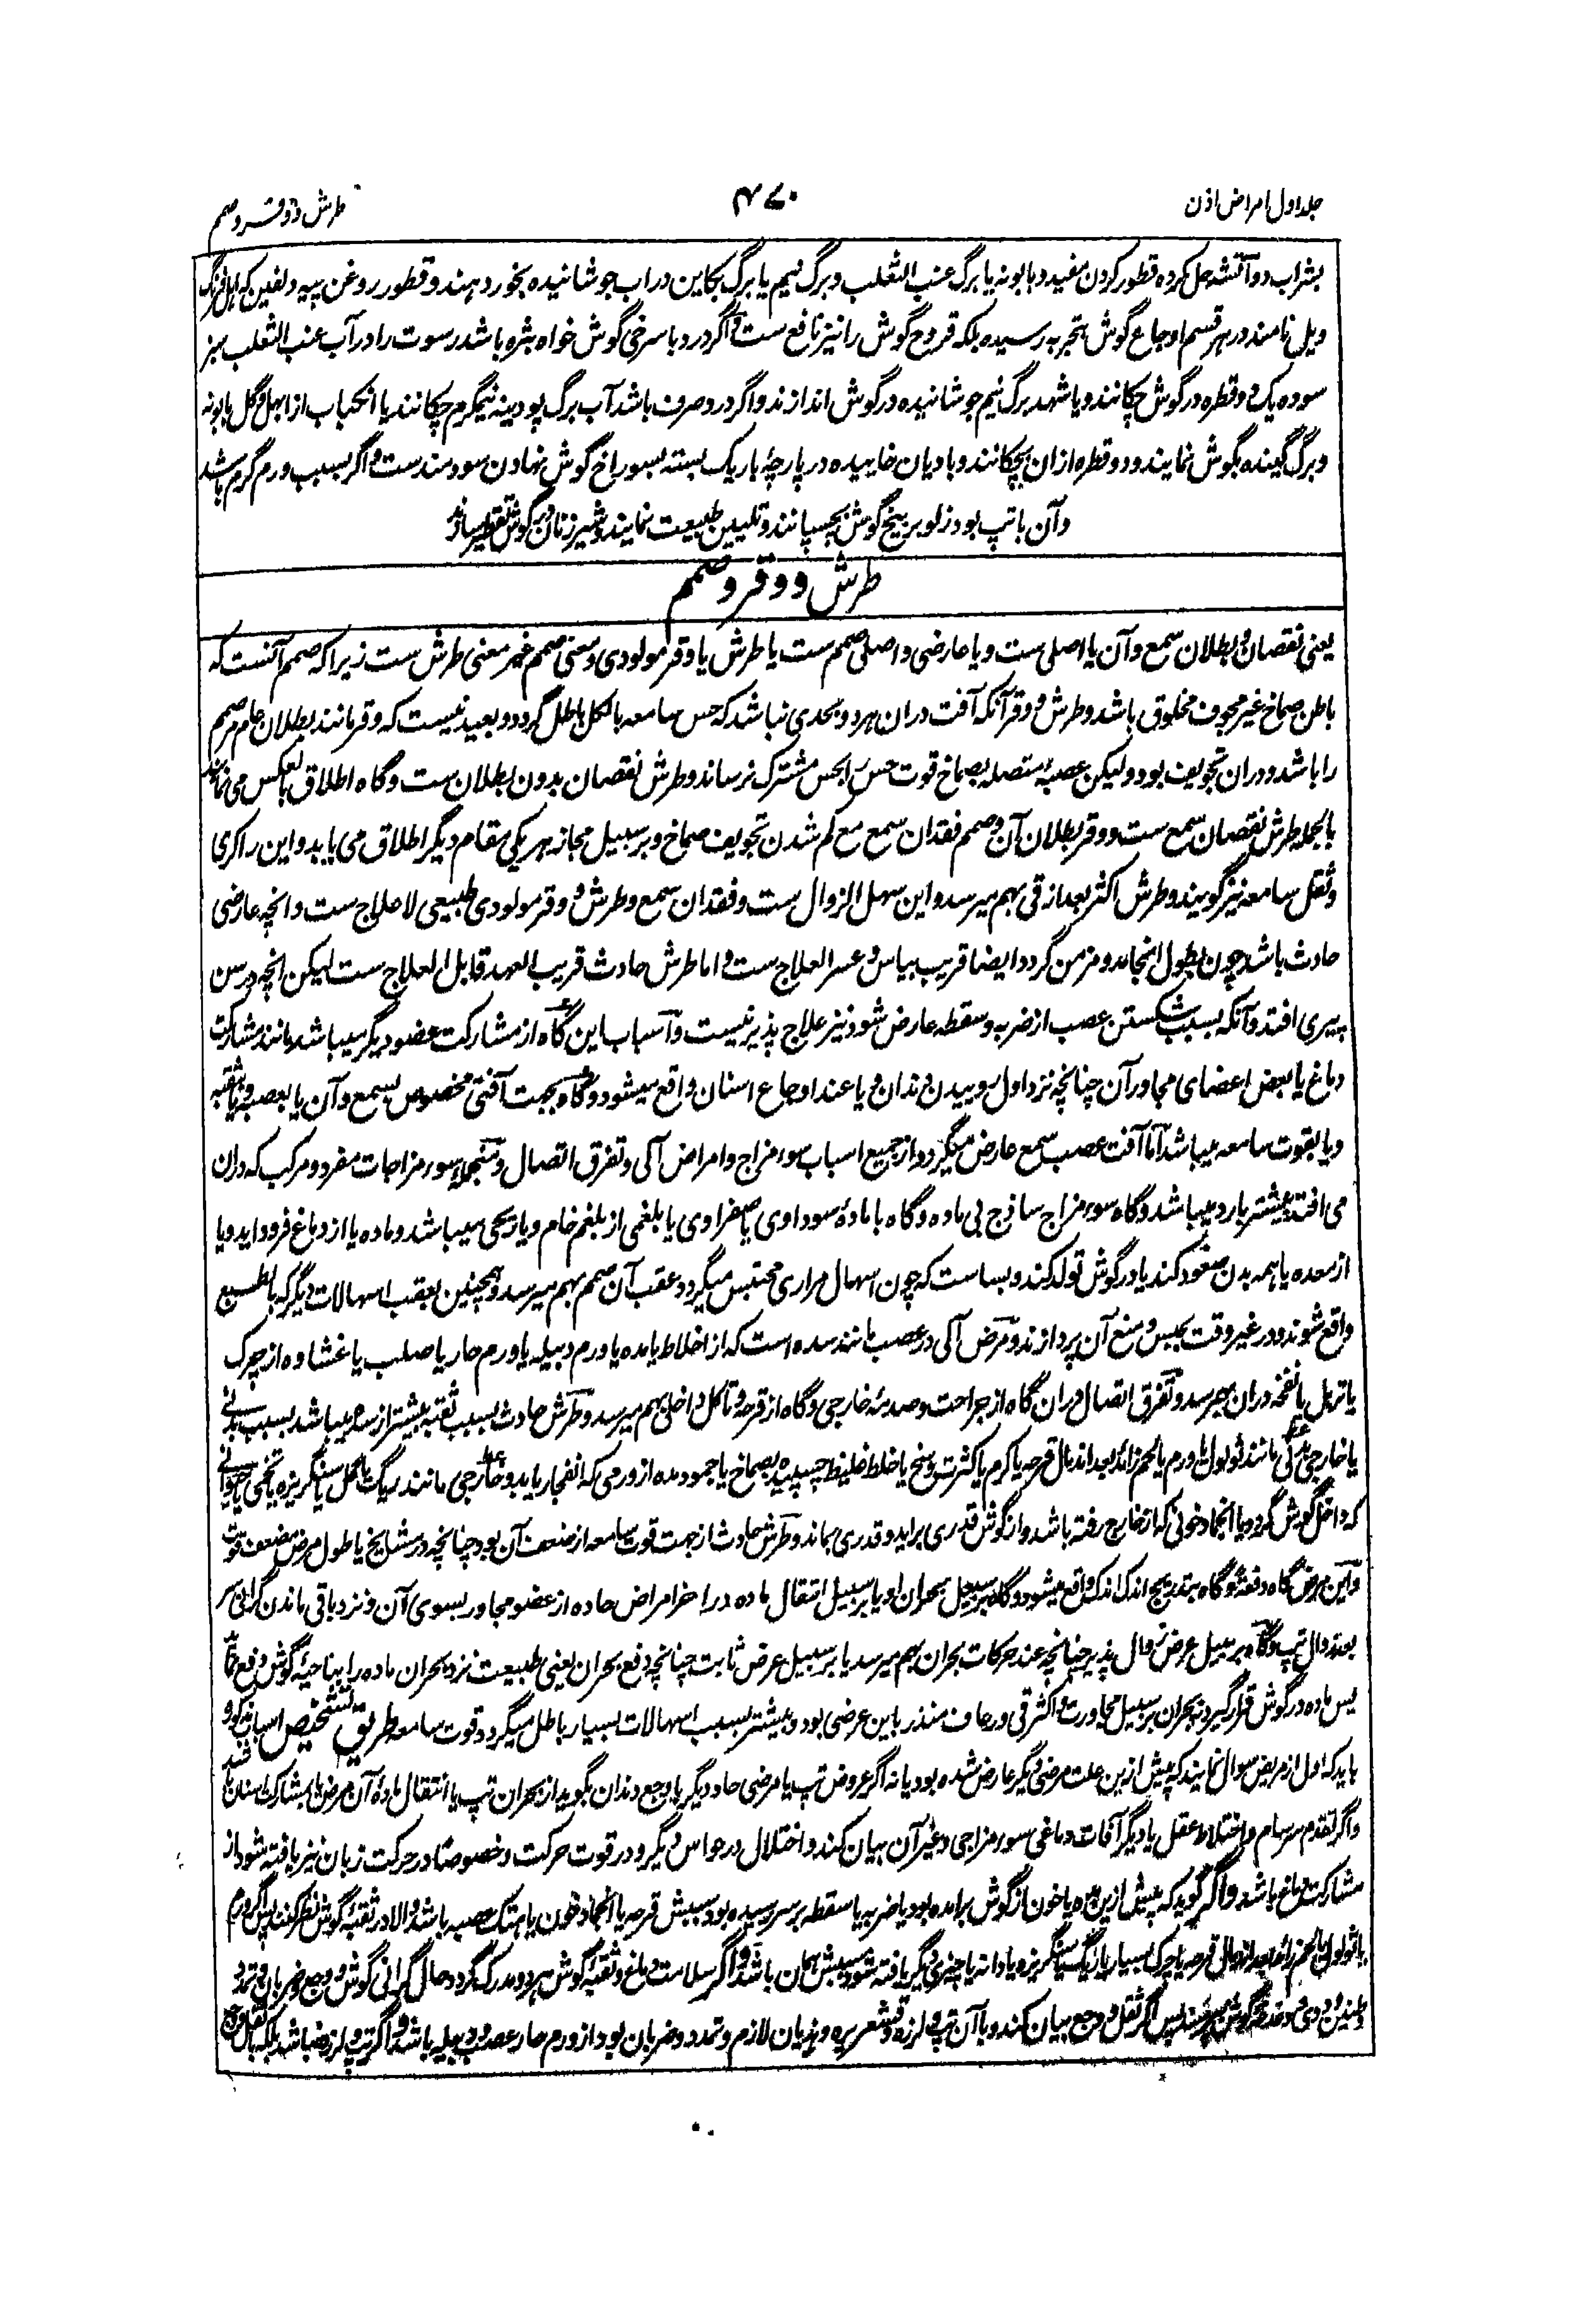 جلد اول امراض اذن
۴۷۰
طرش و وقر و صمم
بشراب دو آتشه حل کرده قطور کردن مفید و بابونه یا برگ عنب الثعلب و برگ نیم یا برگ بکاین در اب جوشانیده بخور دهند و قطور روغن پیه دلفین که اهل فرنگ
ویل نامند در هر قسم اوجاع گوش بتجربه رسیده بلکه قروح گوش را نیز نافع ست و اگر درد با سرخی گوش خواه بثره باشد رسوت را در آب عنب الثعلب سبز
سوده یک دو قطره در گوش چکانند و یا شهد برگ نیم جوشانیده در گوش اندازند و اگر درد صرف باشد آب برگ پودینه نیمگرم چکانند یا انکباب از ابهل و گل بابونه
و برگ گینده بگوش نمایند و دو قطره ازان بچکانند و بادیان خاییده در پارچهٔ باریک بسته بسوراخ گوش نهادن سودمندست و اگر بسبب ورم گرم باشد
و آن با تپ بود زلو بر بیخ گوش بچسپانند و تلیین طبیعت نمایند و شیر زنان در گوش تقطیر سازند
طرش و وقر و صمم
یعنی نقصان و بطلان سمع و آن یا اصلی ست و یا عارضی و اصلی صمم ست یا طرش یا وقر مولودی و معنی صمم غیر معنی طرش ست زیرا که صمم آنست که
باطن صماخ غیر مجوف مخلوق باشد و طرش و وقر آنکه آفت دران هر دو بحدی نباشد که حس سامعه بالکل باطل گردد و بعید نیست که وقر مانند بطلان عام مر صمم
را باشد و دران تجویف بود و لیکن عصبهٔ متصله بصماخ قوت حس را بحس مشترک نرساند و طرش نقصان بدون بطلان ست و گاه اطلاق بالعکس می نمایند
بالجمله طرش نقصان سمع ست و وقر بطلان آن و صمم فقدان سمع مع کم شدن تجویف صماخ و بر سبیل مجاز هر یکی بمقام دیگر اطلاق می یابد و این را کری
و ثقل سامعه نیز گویند و طرش اکثر بعد از قی بهم میرسد و این سهل الزوال ست و فقدان سمع و طرش و وقر مولودی طبیعی لا علاج ست و انچه عارضی
حادث باشد چون بطول انجامد و مزمن گردد ایضا قریب بیاس و عسر العلاج ست و اما طرش حادث قریب العهد قابل العلاج ست لیکن انچه در سن
پیری افتد و آنکه بسبب شکستن عصب از ضربه و سقطه عارض شود نیز علاج پذیر نیست و اسباب این گاه از مشارکت عضو دیگر میباشد مانند مشارکت
دماغ یا بعض اعضای مجاور آن چنانچه نزد اول روییدن دندان و یا عند اوجاع اسنان واقع میشود و گاه بجهت آفتی مخصوص بسمع و آن یا بعصب و یا بثقبه
و یا بقوت سامعه میباشد اما آفت عصب سمع عارض میگردد از جمیع اسباب سوء مزاج و امراض آلی و تفرق اتصال و منجمله سوء مزاجات مفرد و مرکب که دران
می افتد بیشتر بارد میباشد و گاه سوء مزاج ساذج بی ماده و گاه با مادهٔ سوداوی یا صفراوی یا بلغمی از بلغم خام و یا ریحی میباشد و ماده یا از دماغ فرود اید و یا
از معده یا همه بدن صعود کند یا در گوش تولد کند و بسا ست که چون اسهال مراری محتبس میگردد عقب آن صمم بهم میرسد و همچنین بعقب اسهالات دیگر که بالطبع
واقع شوند و در غیر وقت بحبس و منع آن پردازند و مرض آلی در عصب مانند سده است که از اخلاط یا مده یا ورم دبیله یا ورم حار یا صلب یا غشاوه از چرک
یا ترهل یا نفخه دران بهم رسد و تفرق اتصال دران گاه از جراحت و صدمهٔ خارجی و گاه از قرحه و تاکل داخلی بهم میرسد و طرش حادث بسبب ثقبه بیشتر از سده میباشد بسبب بدنی
یا خارجی بدنی مانند ثولول یا ورم یا لحم زائد بعد اندمال قرحه یا کرم یا کثرت وسخ یا خلط غلیظ چسپیده بصماخ یا جمود مده از ورمی که انفجار یابد و خارجی مانند ریگ یا گل یا سنگریزه یا تخمی یا حیوانی
که داخل گوش گردد یا انجماد خونی که از خارج رفته باشد و از گوش قدری براید و قدری بماند و طرش حادث از جهت قوت سامعه از ضعف آن بود چنانچه در مشایخ یا طول مرض مضعف قوت
و این مرض گاه دفعة و گاه بتدریج اندک اندک واقع میشود و گاه بر سبیل بحران او یا بر سبیل انتقال ماده در اخر امراض حاده از عضو مجاور بسوی آن و نزد باقی ماندن گرانی سر
بعد زوال تپ و گاه بر سبیل عرض زوال پذیر چنانچه عند حرکات بحران بهم میرسد یا بر سبیل عرض ثابت چنانچه دفع بحران یعنی طبیعت نزد بحران ماده را بناحیهٔ گوش دفع نماید
پس ماده در گوش قرار گیرد نه بحران بر سبیل مجاورت و اکثر قی و رعاف منذر باین عرضی بود و بیشتر بسبب اسهالات بسیار باطل میگردد قوت سامعه طریق تشخیص اسباب مذکوره
باید که اول از مریض سوال نمایند که پیش ازین علت مرضی دیگر عارض شده بود یا نه اگر عروض تپ یا مرضی حاد دیگر یا وجع دندان بگوید از بحران تپ یا انتقال مادهٔ آن مرض یا بمشارکت اسنان
و اگر تقدم سرسام و اختلاط عقل یا دیگر آفات دماغی سوء مزاجی و غیر آن بیان کند و اختلال در حواس دیگر و در قوت حرکت و خصوصا در حرکت زبان نیز یافته شود از
مشارکت دماغ باشد و اگر گوید که پیش ازین مده یا خون از گوش برامده بود یا ضربه یا سقطه بر سر رسیده بود سببش قرحه یا انجماد خون یا هتک عصب باشد و الا در ثقبهٔ گوش نظر کنند پس اگر ورم
یا ثولول یا لحم زائد بعد اندمال قرحه یا چرک بسیار یا ریگ یا سنگریزه و یا دانه یا چیزی دیگر یافته شود سببش همان باشد و اگر سلامت دماغ و ثقبهٔ گوش هر دو مدرک گردد حال گرانی گوش و وجع و ضربان و تمدد
پس اگر ثقل و وجع بیان کند و با آن تپ و لرزه و قشعریره و هذیان لازم و تمدد و ضربان بود از ورم حار عصب و دبیله باشد و اگر تپ و لرزه نباشد بلکه